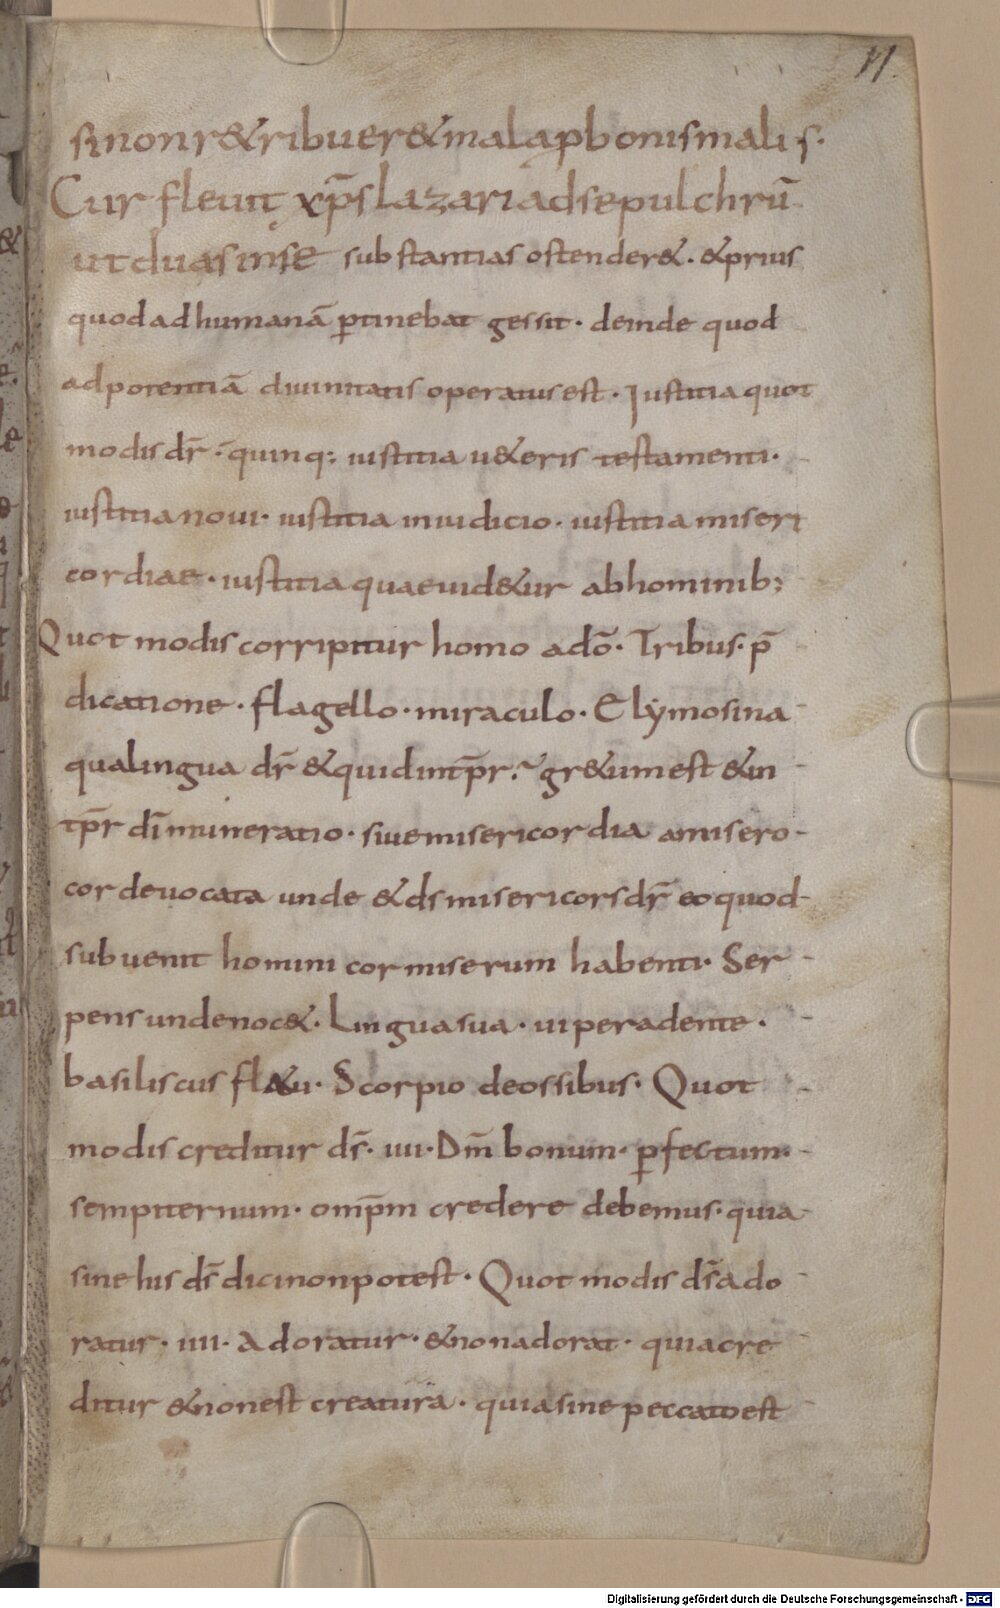 11
si non r&ribuer& mala p bonis malis·
Cur fleuit xp̄s lazari ad sepulchrū
ut duas in se substantias ostender&· & prius
quod ad humanā ꝑtinebat gessit· deinde quod
ad potentiā diuinitatis operatus est· Iustitia quot
modis dr̄· quinq; iustitia u&eris testamenti·
iustitia noui· iustitia in iudicio· iustitia miseri
cordiae· iustitia quae uid&ur ab hominib;
Quot modis corripitur homo a dō· Tribus· p̄
dicatione· flagello· miraculo· Elymosina
qua lingua dr̄ & quid int̄pr̄· gr&um est & in
t̄pr̄ dī muneratio· siue misericordia a misero
corde uocata unde & ds misericors dr̄ eo quod
subuenit homini cor miserum habenti· Ser
pens unde noc&· Lingua sua· uipera dente·
basiliscus fl&u· Scorpio de ossibus· Quot
modis creditur ds̄· iiii· Dm̄ bonum· ꝑfectum·
sempiternum· omp̄m credere debemus· quia
sine his ds̄ dici non potest· Quot modis ds̄ ado
ratur· iiii· Adoratur· & non adorat· quia cre
ditur & non est creatura· quia sine peccato est
Digitalisierung gefördert durch die Deutsche Forschungsgemeinschaft - DFG